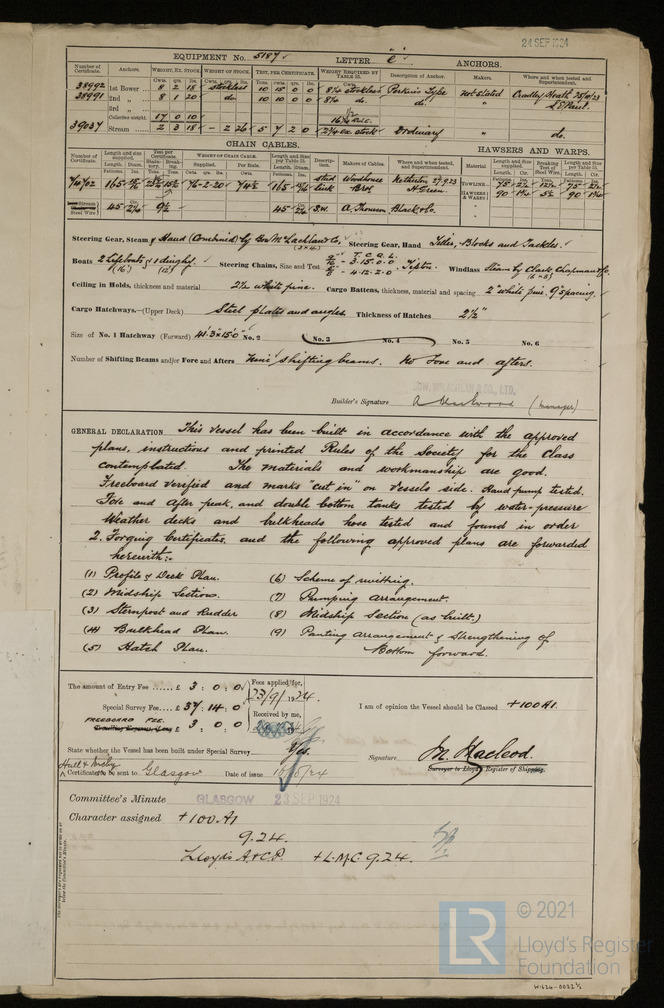 24 SEP 1924
EQUIPMENT No. 5187 LETTER "C" ANCHORS.
Number of Certificate. Anchors. WEIGHT, EX. STOCK WEIGHT OF STOCK. TEST, PER CERTIFICATE. WEIGHT REQUIRED BY TABLE 31. Description of Anchor. Makers. Where and when tested and Superintendent.
38992 1st Bower 8 2 18 stockless 10 15 0 0 8½ stockless Perkins Type Not stated Cradley Heath
38991 2nd " 8 1 20 do 10 10 0 0 do. do " S. Paul.
3rd "
Collective weight. 17 0 10
39037 Stream 2 3 18 - 2 26 5 7 2 0 ex. stock Ordinary " do.
CHAIN CABLES. HAWSERS AND WARPS.
Number of Certificate. Length and size supplied. Test per Certificate. WEIGHT OF CHAIN CABLE. Length and size per Table 31. Description. Makers of Cables. Where and when tested, and Superintendent. Material Length and size supplied. Breaking Test of Steel Wire. Length and size per Table 31.
165 76-2-20 165 stud link Woodhouse Bros Netherton 27.9.23 H. Green TOWLINE 75 75
HAWSERS & WARPS 90 90
Stream Steel Wire 45 45 S.W. A. Thomson Black & Co.
Steering Gear, Steam & Hand (Combined) by Geo McLachlan & Co. Steering Gear, Hand Tiller, Blocks and Tackles.
Boats 2 Lifeboats & 1 dinghy. (16') (12') Steering Chains, Size and Test Tipton. Windlass Steam by Clark, Chapman & Co.
Ceiling in Holds, thickness and material 2½ white pine. Cargo Battens, thickness, material and spacing 2" white pine. 9" spacing.
Cargo Hatchways.—(Upper Deck) Steel plates and angles. Thickness of Hatches 2½"
Size of No. 1 Hatchway (Forward) 41'.3" x 15'.0" No. 2 No. 3 No. 4 No. 5 No. 6
Number of Shifting Beams and/or Fore and Afters shifting beams. No Fore and afters.
Builder's Signature (manager)
GENERAL DECLARATION This vessel has been built in accordance with the approved
plans, instructions and printed Rules of the Society for the Class
contemplated. The materials and workmanship are good.
Freeboard verified and marks "cut in" on vessels side. Hand pump tested.
Fore and after peak, and double bottom tanks tested by water-pressure
Weather decks and bulkheads hose tested and found in order
2. Forging Certificates, and the following approved plans are forwarded
herewith:-
(1) Profile & Deck Plan. (6) Scheme of rivetting.
(2) Midship Section. (7) Pumping arrangement.
(3) Sternpost and Rudder (8) Midship Section (as built.)
(4) Bulkhead Plan. (9) Panting arrangement & Strengthening of
(5) Hatch Plan. Bottom forward.
The amount of Entry Fee ...... £ 3 : 0 : 0 Fees applied for,
23/9/1924.
Special Survey Fee..... £ 37 : 14 : 0 I am of opinion the Vessel should be Classed +100A1.
FREEBOARD FEE. £ 3 : 0 : 0 Received by me,
State whether the Vessel has been built under Special Survey Yes.
Signature M. Macleod.
Surveyor to Lloyd's Register of Shipping.
Certificate to be sent to Glasgow Date of issue
Committee's Minute GLASGOW 23 SEP 1924
Character assigned +100A1
9.24.
Lloyds A & C.P. +L.M.C 9.24.
LR
© 2021
Lloyd's Register
Foundation
W1624-0022½